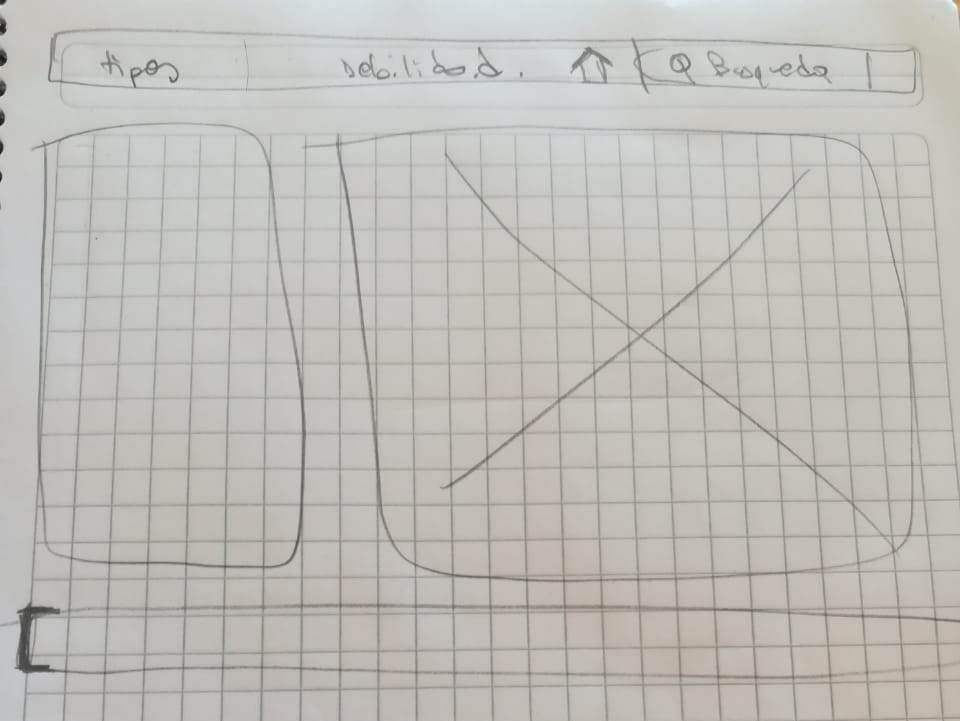 tipos Debilidad. Busqueda